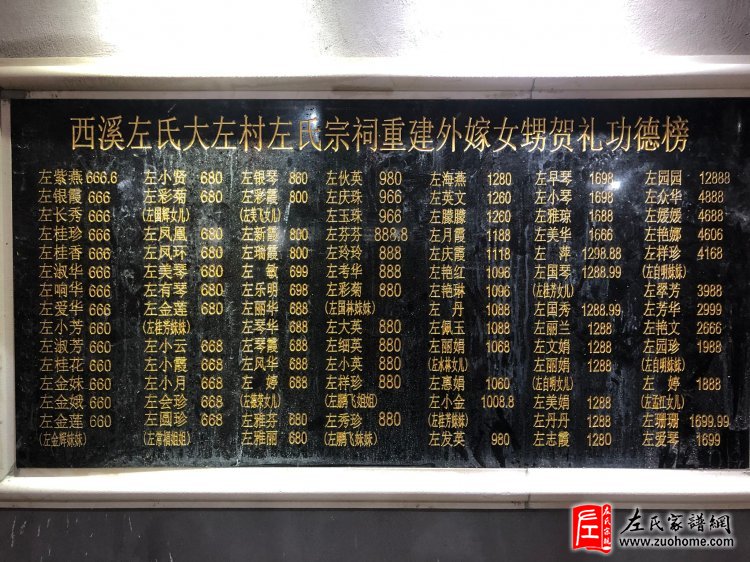 西溪左氏大左村左氏宗祠重建外嫁女甥贺礼功德榜
左紫燕 666.6 左小贤 680 左银琴 860 左伙英 980 左海燕 1280 左早琴 1698 左园园 12888
左银霞 666 左彩菊 680 左彩霞 800 左庆珠 966 左英文 1260 左小琴 1698 左众华 4888
左长秀 666 (左国辉女儿) (左美飞女儿) 左玉珠 966 左朦朦 1260 左雅琼 1688 左媛媛 4688
左桂珍 660 左凤凰 680 左新霞 800 左芬芬 888.8 左月霞 1188 左美华 1666 左艳娜 4606
左桂香 660 左凤环 680 左瑞霞 800 左玲玲 888 左庆霞 1118 左 萍 1298.88 左祥珍 4168
左淑华 660 左美琴 680 左 敏 699 左考华 888 左艳红 1096 左国琴 1288.99 (左自明妹妹)
左响华 660 左有琴 680 左乐明 698 左彩菊 880 左艳琳 1096 (左桂芳女儿) 左翠芳 3988
左爱华 660 左金莲 680 左丽华 688 (左国林妹妹) 左 丹 1088 左国秀 1288.99 左芳华 2999
左小芳 660 (左桂芳妹妹) 左琴华 688 左大英 880 左佩玉 1088 左丽兰 1288 左艳文 2666
左淑芳 660 左小云 668 左琴霞 688 左细英 880 左丽娟 1088 左文娟 1288 左园珍 1988
左桂花 660 左小霞 668 左风华 688 左小英 880 (左水林女儿) 左丽娟 1288 (左自明妹妹)
左金妹 660 左小月 668 左 婷 688 左祥珍 880 左惠娟 1060 (左自明女儿) 左 婷 1888
左金娥 660 左会珍 668 (左德荣女儿) (左鹏飞姐姐) 左小金 1008.8 左美娟 1288 (左孟红女儿)
左金莲 660 左圆珍 668 左雅芬 680 左秀珍 880 (左桂芳女儿) 左丹丹 1288 左珊珊 1699.99
(左金辉妹妹) 左雅丽 680 (左鹏飞妹妹) 左发英 980 左志霞 1280 左爱琴 1699
左氏家譜網
www.zuohome.com